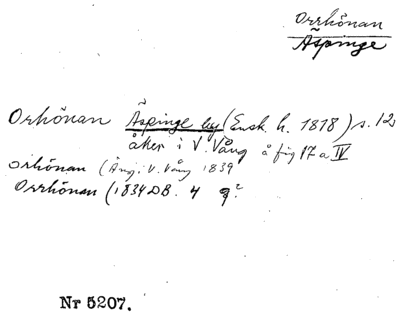 Orrhönan
Äspinge
Orhönan Äspinge by (Ensk. h. 1818) s. 12
åker i V. Vång å fig 17 a IV
Orhönan (Äng i V. Vång 1839
Orrhönan (1834 DB. 4
Nr 5207.